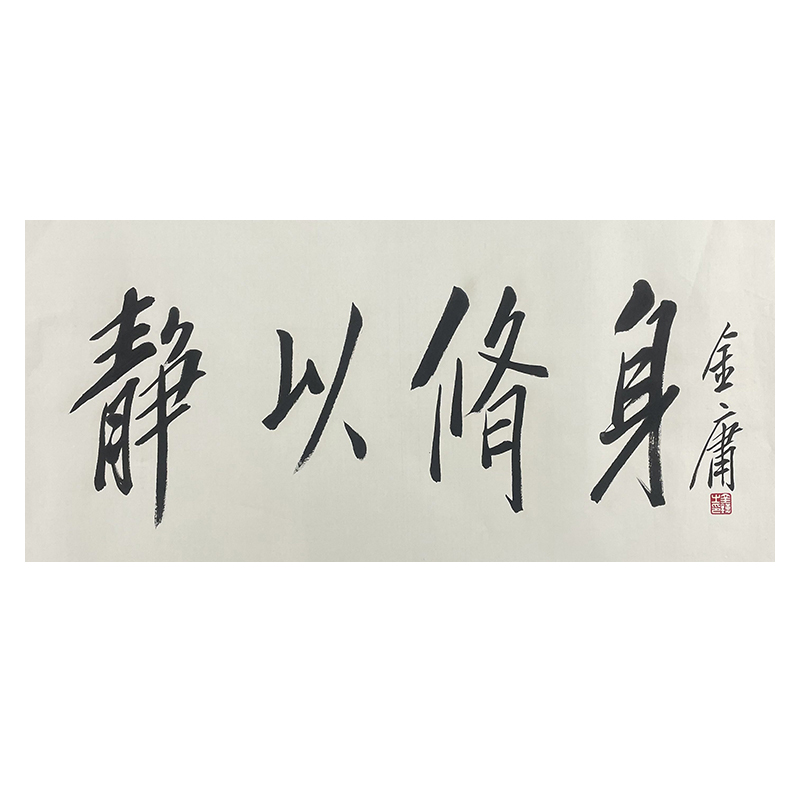 静以脩身
金庸